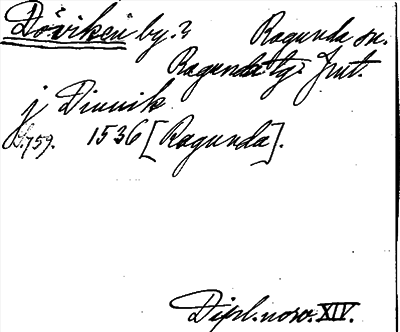 Döviken by.? Ragunda sn.
Ragunda tg. Jmt.
j Diuuik
S.759. 1536 [Ragunda].
Dipl. norv. XIV.